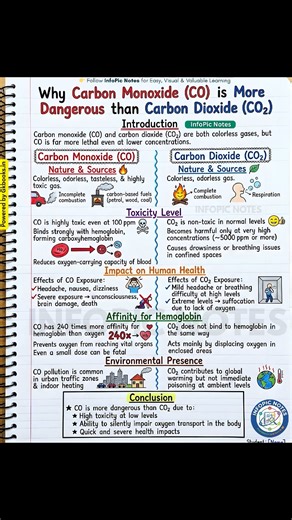 Follow InfoPic Notes for Easy, Visual & Valuable Learning
Why Carbon Monoxide (CO) is More
Dangerous than Carbon Dioxide (CO₂)
Introduction
InfoPic Notes
Carbon monoxide (CO) and carbon dioxide (CO₂) are both colorless gases, but
CO is far more lethal even at lower concentrations.
Carbon Monoxide (CO)
Nature & Sources
Colorless, odorless, tasteless, & highly
toxic gas.
Incomplete
combustion
carbon-based fuels
(petrol, wood, coal)
Carbon Dioxide (CO₂)
Nature & Sources
Colorless, odorless gas.
Complete
combustion
Respiration
INFOPIC NOTES
Toxicity Level
CO is highly toxic even at 100 ppm
Binds strongly with hemoglobin,
forming carboxyhemoglobin
Reduces oxygen-carrying capacity of blood
CO₂ is non-toxic in normal levels
Becomes harmful only at very high
concentrations (~5000 ppm or more)
Causes drowsiness or breathing issues
in confined spaces
Impact on Human Health
Effects of CO Exposure:
✓ Headache, nausea, dizziness
✓ Severe exposure → unconsciousness,
brain damage, death
Effects of CO₂ Exposure:
✓ Mild headache or breathing
difficulty at high levels
• Extreme levels → suffocation
due to lack of oxygen
Affinity for Hemoglobin
CO has 240 times more affinity for
hemoglobin than oxygen
240x→
Prevents oxygen from reaching vital organs
Even a small dose can be fatal
CO₂ does not bind to hemoglobin in
the same way
Acts mainly by displacing oxygen in
enclosed areas
Environmental Presence
CO pollution is common
in urban traffic zones
& indoor heating
CO₂ contributes to global
warming but not immediate
poisoning at ambient levels
Conclusion
★ CO is more dangerous than CO₂ due to:
★ High toxicity at low levels
• Ability to silently impair oxygen transport in the body
★ Quick and severe health impacts
INFOPIC NOTES
Powered by Gkbooks.in